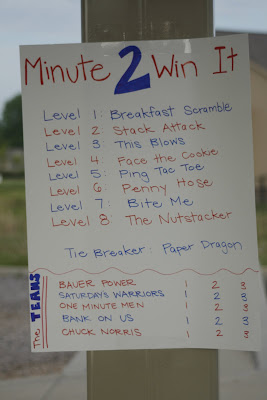 Minute 2 Win It
Level 1: Breakfast Scramble
Level 2 Stack Attack
Level 3 This Blows
Level 4: Face the Cookie
Level 5: Ping Tac Toe
Level 6: Penny Hose
Level 7: Bite Me
Level 8: The Nutstacker
Tie Breaker: Paper Dragon
The TEAMS
BAUER POWER 1 2 3
SATURDAYS WARRIORS 1 2 3
ONE MINUTE MEN 1 2 3
BANK ON US 1 2 3
CHUCK NORRIS 1 2 3